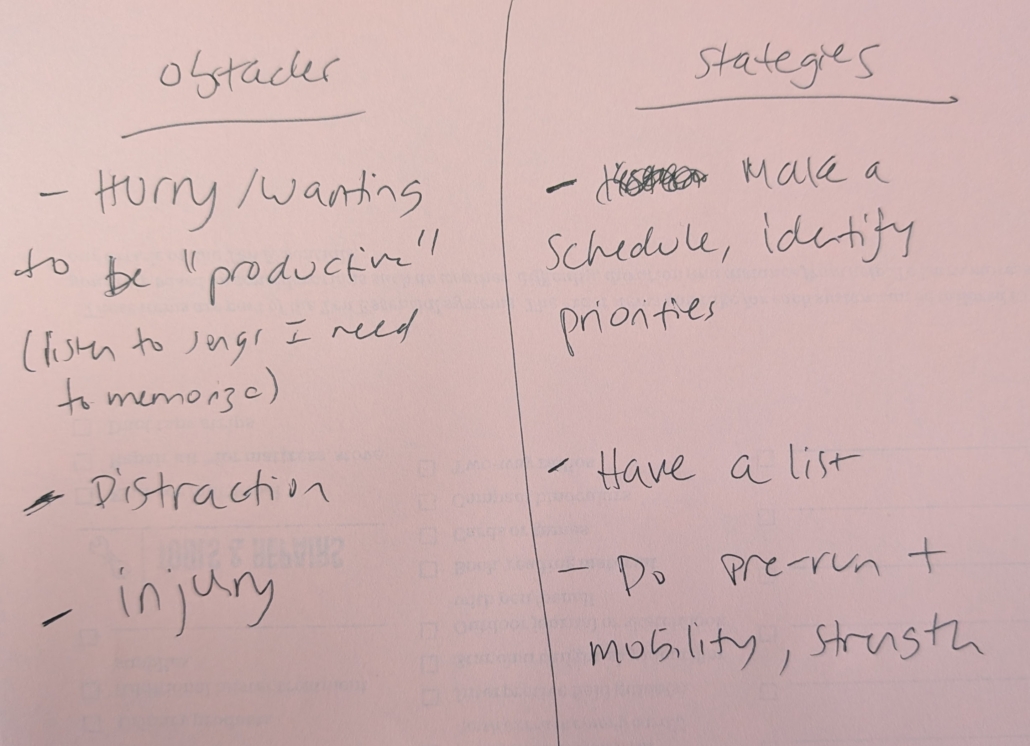 Obstacles
- Hurry/wanting
to be "productive"
(listen to songs I need
to memorize)
- Distraction
- injury
Stategies
- Make a
schedule, identify
priorities
- Have a list
- Do pre-run +
mobility, strength
TOOLS & REPAIRS